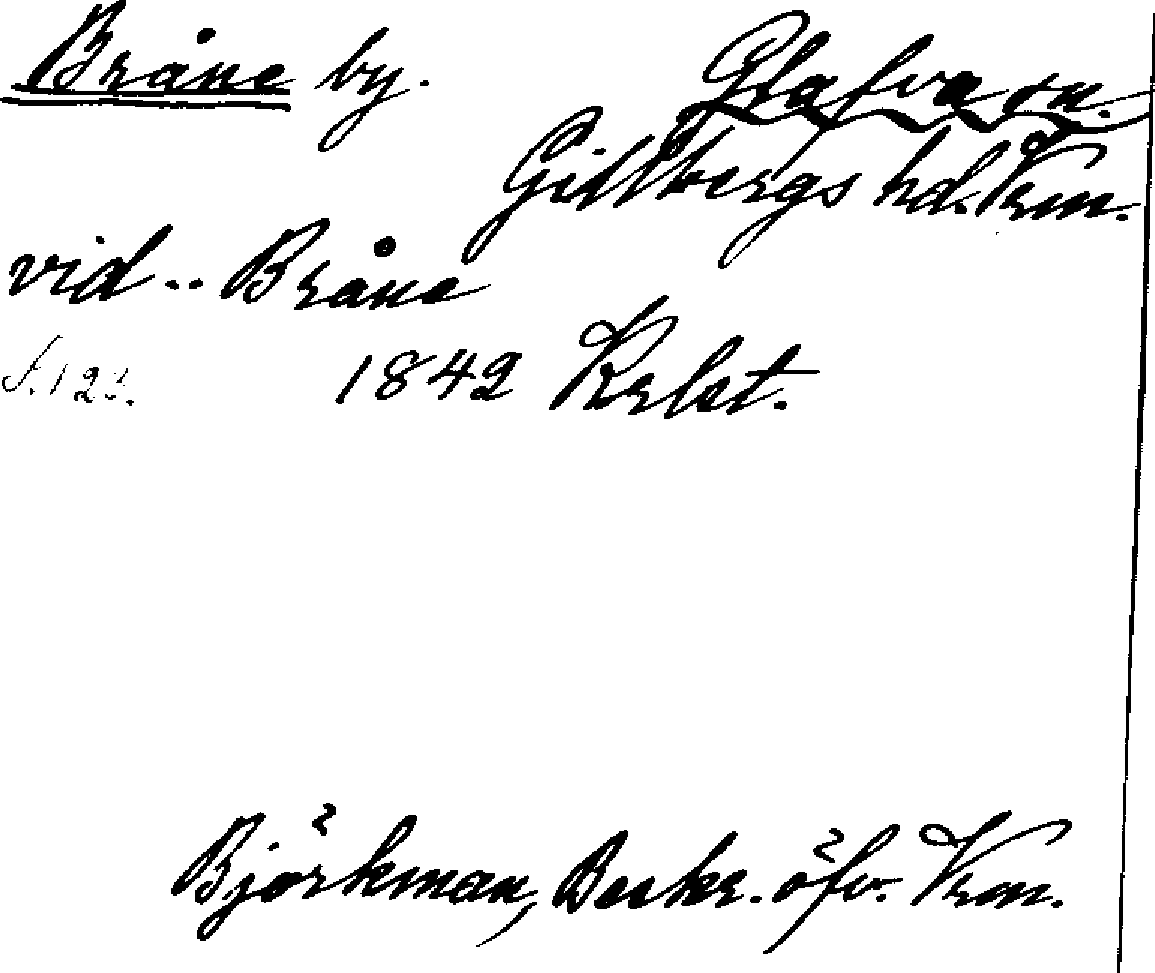 Bråne by. Glafva sn.
Gillbergs hd. Vrm.
vid .. Bråne
S. 123. 1842 Krlst.
Björkman, Beskr. öfv. Vrm.